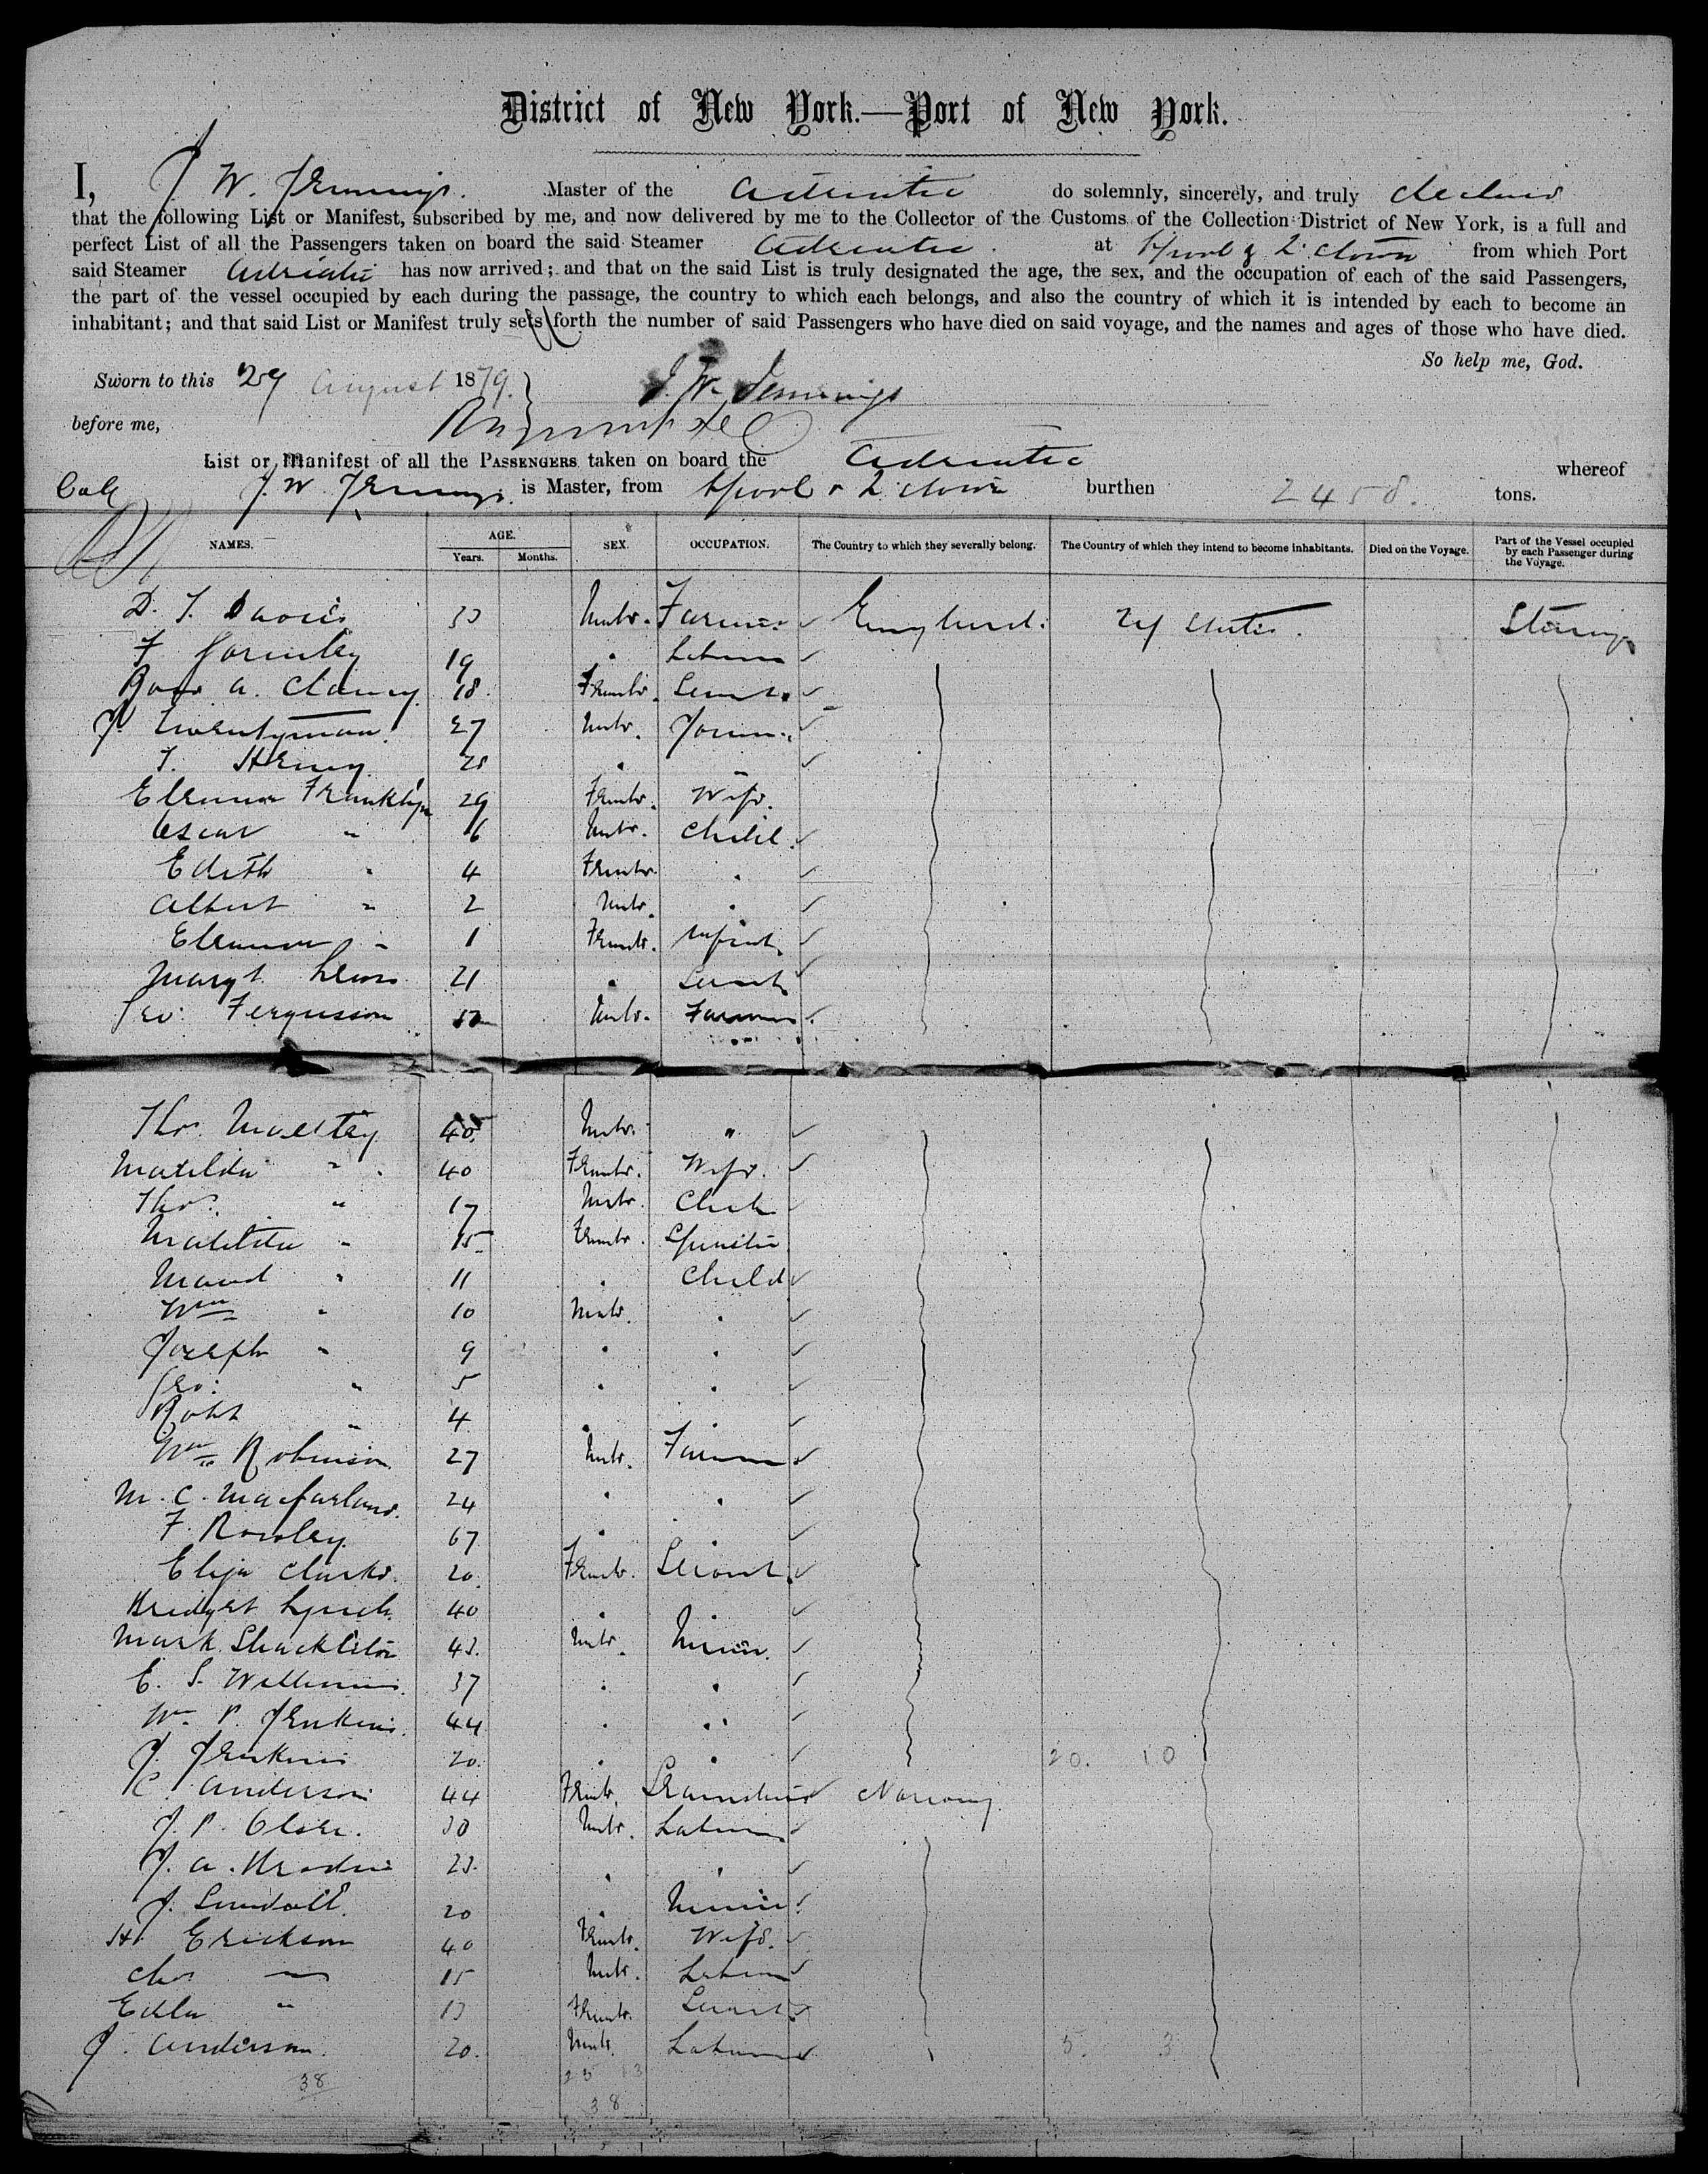 District of New York.—Port of New York.
I, J. W. Jennings. Master of the Adriatic do solemnly, sincerely, and truly declare
that the following List or Manifest, subscribed by me, and now delivered by me to the Collector of the Customs of the Collection District of New York, is a full and
perfect List of all the Passengers taken on board the said Steamer Adriatic. at L'pool & Q. town from which Port
said Steamer Adriatic has now arrived; and that on the said List is truly designated the age, the sex, and the occupation of each of the said Passengers,
the part of the vessel occupied by each during the passage, the country to which each belongs, and also the country of which it is intended by each to become an
inhabitant; and that said List or Manifest truly sets forth the number of said Passengers who have died on said voyage, and the names and ages of those who have died.
So help me, God.
Sworn to this 29 August 1879. J. W. Jennings
before me,
List or Manifest of all the Passengers taken on board the Adriatic whereof
J. W. Jennings. is Master, from L'pool & Q. town burthen 2458. tons.
NAMES. AGE. Years. Months. SEX. OCCUPATION. The Country to which they severally belong. The Country of which they intend to become inhabitants. Died on the Voyage. Part of the Vessel occupied by each Passenger during the Voyage.
D. T. Davies 33 Male. Farmer England. U States. Steerage
F Gormley 19 " Laborer
Rose A. Clancy 18 Female. Servt.
J. Twentyman 27 Male. Joiner
T. Henry 28 "
Eleanor Franklyn 29 Female. Wife.
Oscar " 6 Male. Child.
Edith " 4 Female. "
Albert " 2 Male. "
Eleanor " 1 Female. Infant
Mary A. Lewis 21 " Servt
Geo: Ferguson 50 Male. Farmer
Thos. 40 Male. "
Matilda " 40 Female. Wife.
Thos. " 17 Male. Clerk
Matilda " 15 Female. Spinster
Maud " 11 " Child
Wm " 10 Male. "
Joseph " 9 " "
Geo: " 5 " "
Robt " 4 " "
Wm Robinson 27 Male. Farmer
M. C. Macfarlane. 24 " "
F. Rowley 67 " "
Eliza Clarke. 20 Female. Servant
Bridget Lynch 40 "
Mark Shackleton 43. Male. Miner.
E. S. Williams. 37 " "
Wm P. Jenkins. 44 " "
J. Jenkins 20. " " 20. 10
C. Anderson 44 Female. Norway.
J. P. Olsen. 30 Male. Laborer
J. A. 23. " "
J. Sundall 20 " Miner.
H. Erickson 40 Female. Wife.
Chas " 15 Male. Laborer
Edla " 13 Female. Servant
J. Anderson. 20. Male. Laborer 5. 3
38 25 13
38